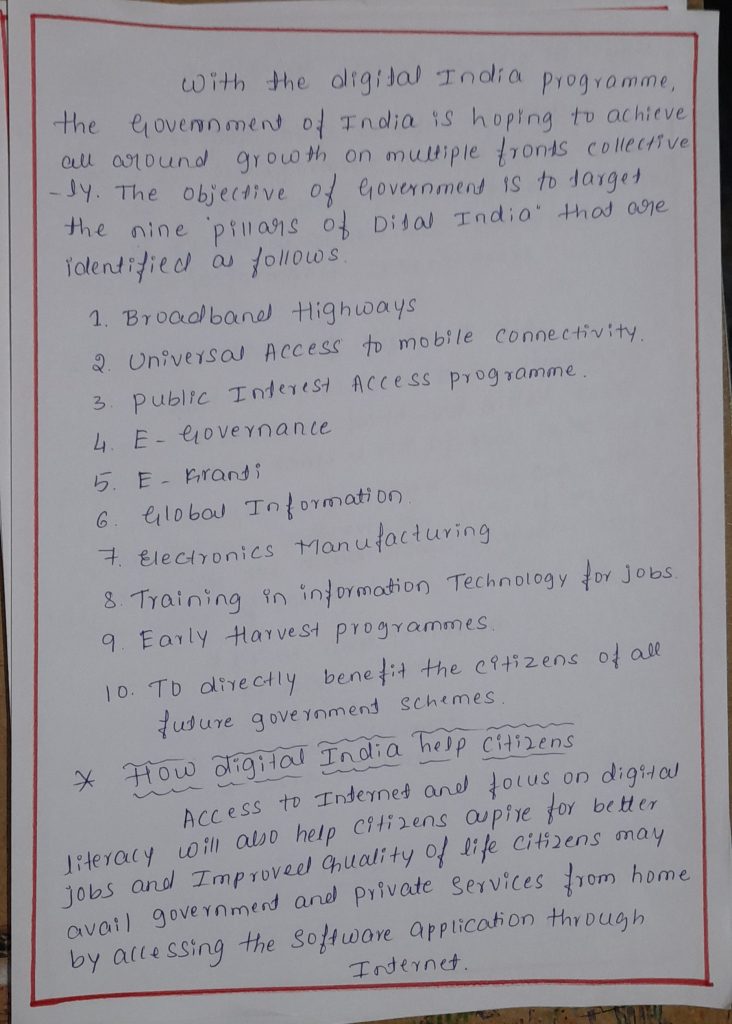 With the digital India programme,
the Government of India is hoping to achieve
all around growth on multiple fronts collective
-ly. The objective of Government is to target
the nine 'pillars of Dital India' that are
identified as follows.
1. Broadband Highways
2. Universal Access to mobile connectivity.
3. Public Interest Access programme.
4. E-Governance
5. E-Kranti
6. Global Information.
7. Electronics Manufacturing
8. Training in information Technology for jobs.
9. Early Harvest programmes.
10. To directly benefit the citizens of all
future government schemes.
* How digital India help citizens
Access to Internet and focus on digital
literacy will also help citizens aspire for better
jobs and Improved Quality of life citizens may
avail government and private services from home
by accessing the software application through
Internet.